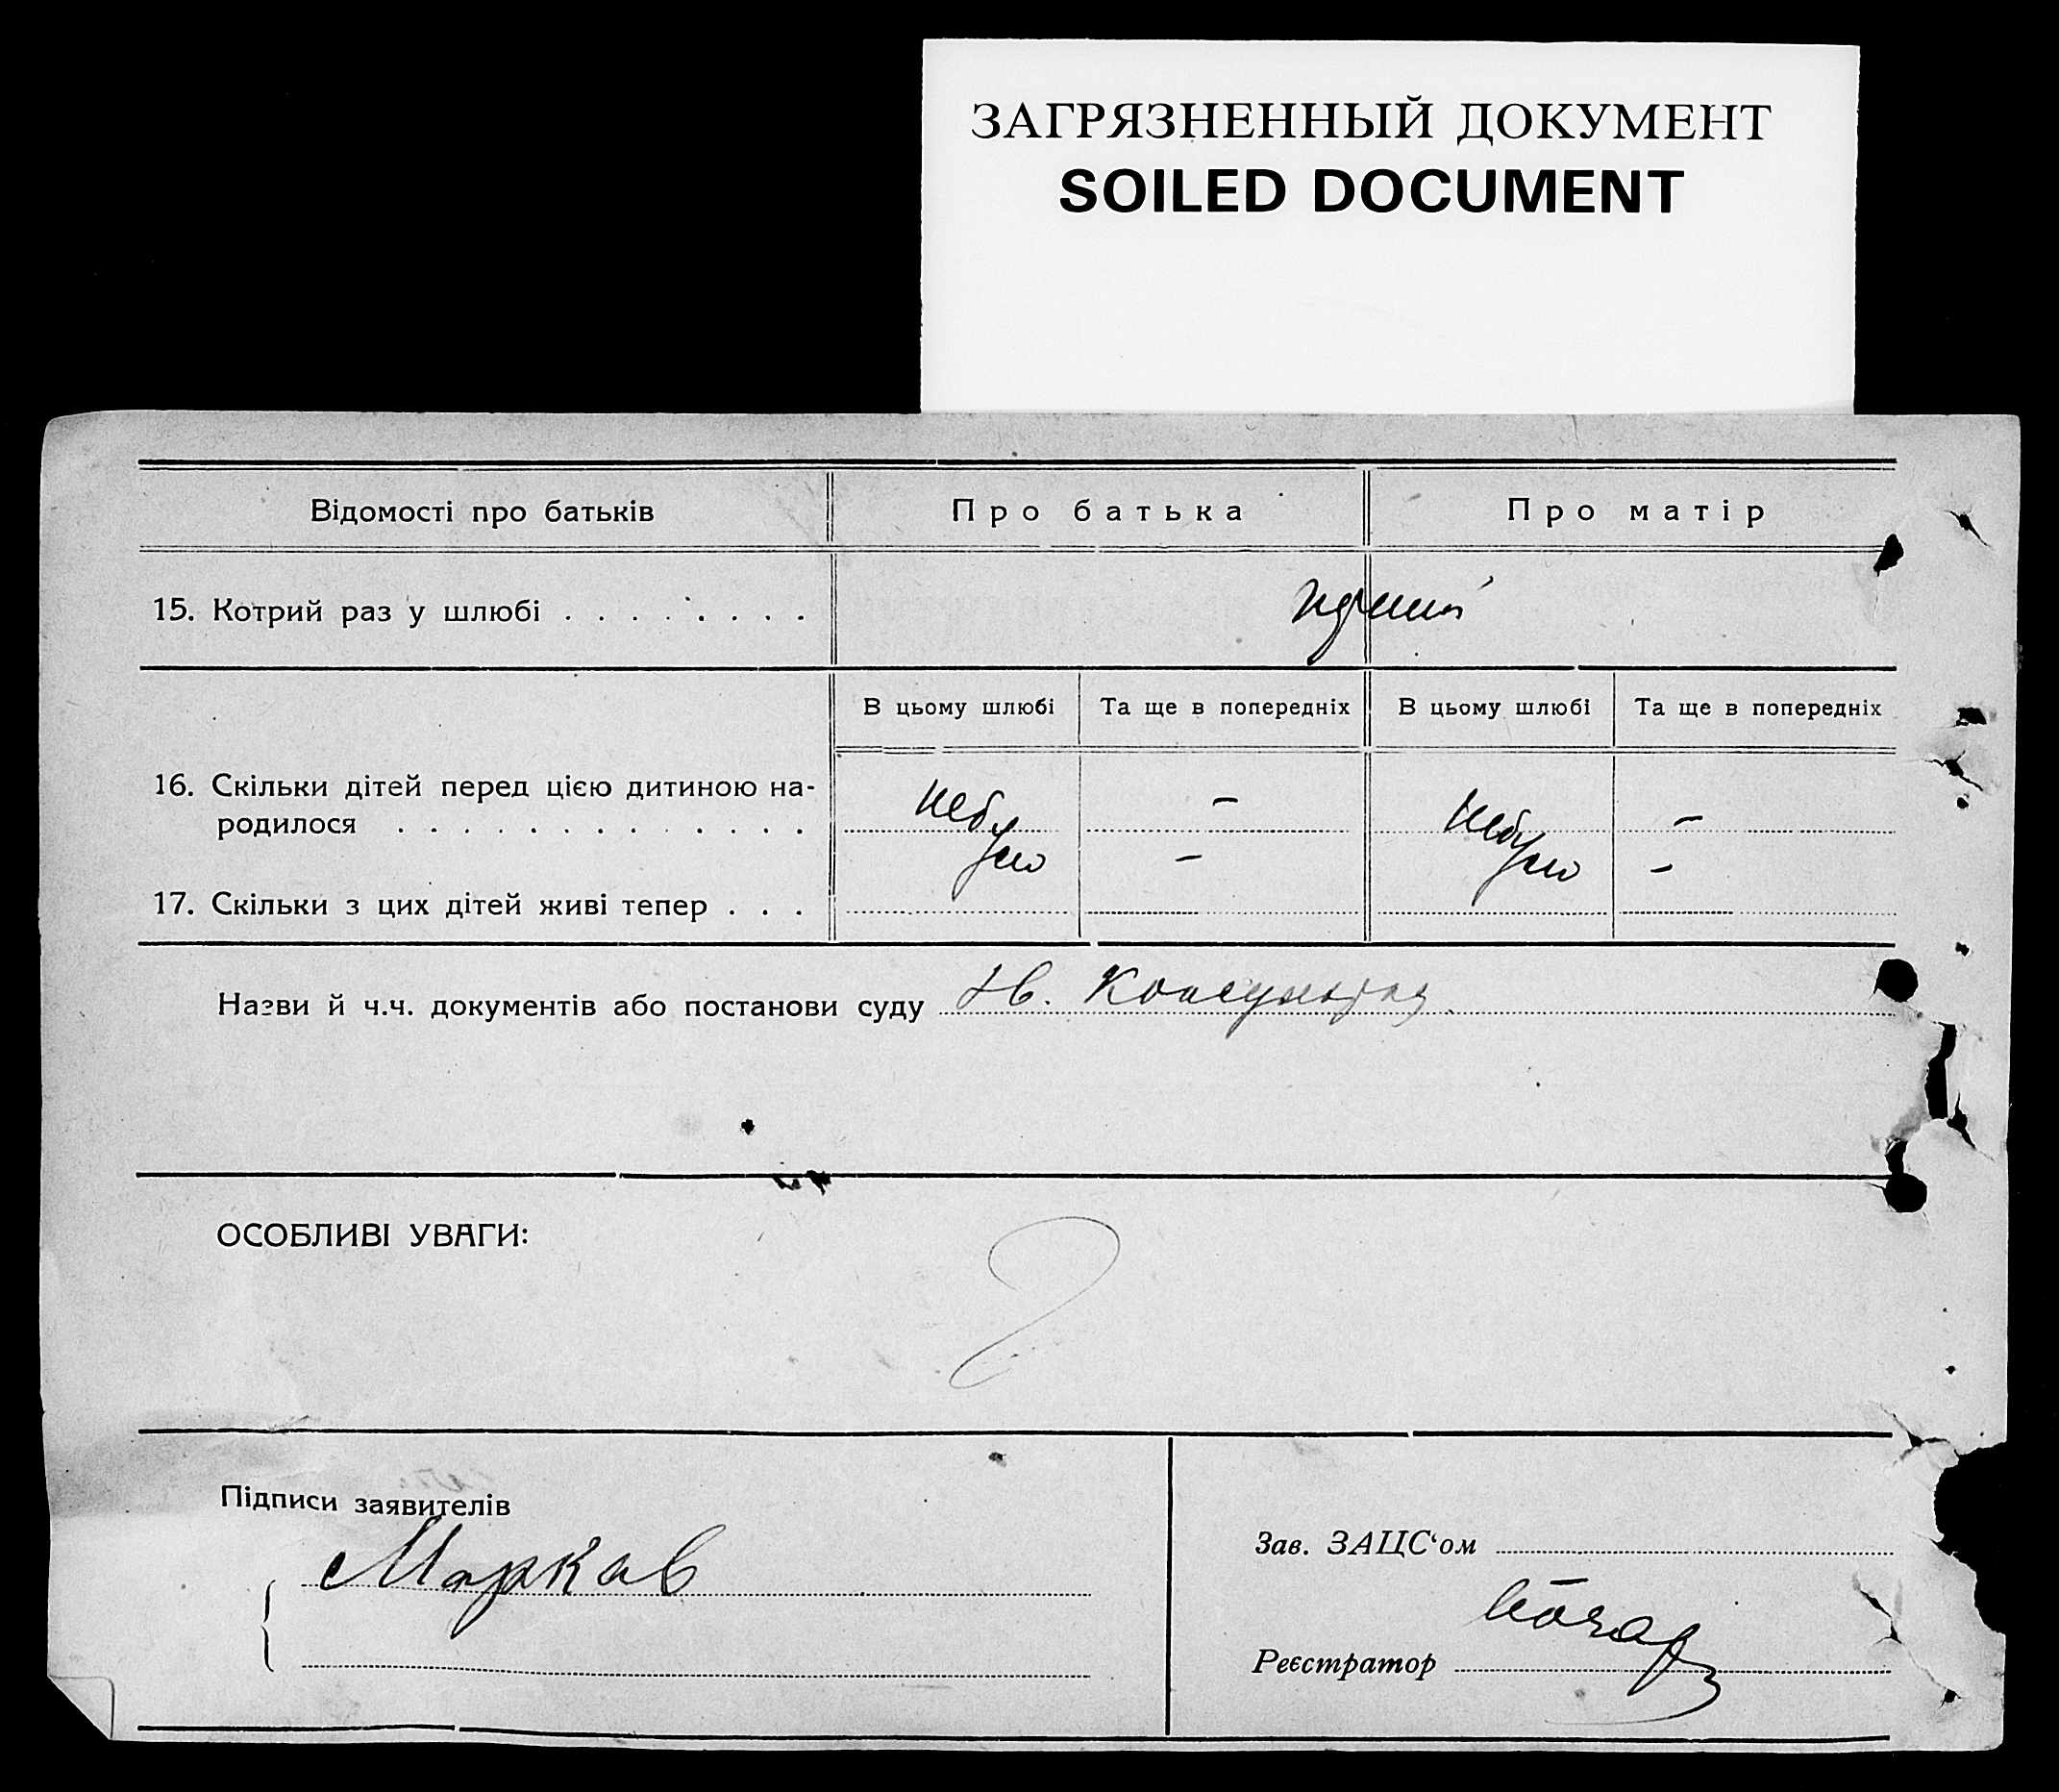 ЗАГРЯЗНЕННЫЙ ДОКУМЕНТ
SOILED DOCUMENT
Відомості про батьків
Про батька
Про матір
15. Котрий раз у шлюбі . . . . . . . .
В цьому шлюбі
Та ще в попередніх
В цьому шлюбі
Та ще в попередніх
16. Скільки дітей перед цією дитиною на-
родилося . . . . . . . . . . . . .
небуло
–
небуло
–
17. Скільки з цих дітей живі тепер . . .
–
–
Назви й ч.ч. документів або постанови суду
ОСОБЛИВІ УВАГИ:
Підписи заявителів
Марков
Зав. ЗАЦС‘ом
Реєстратор